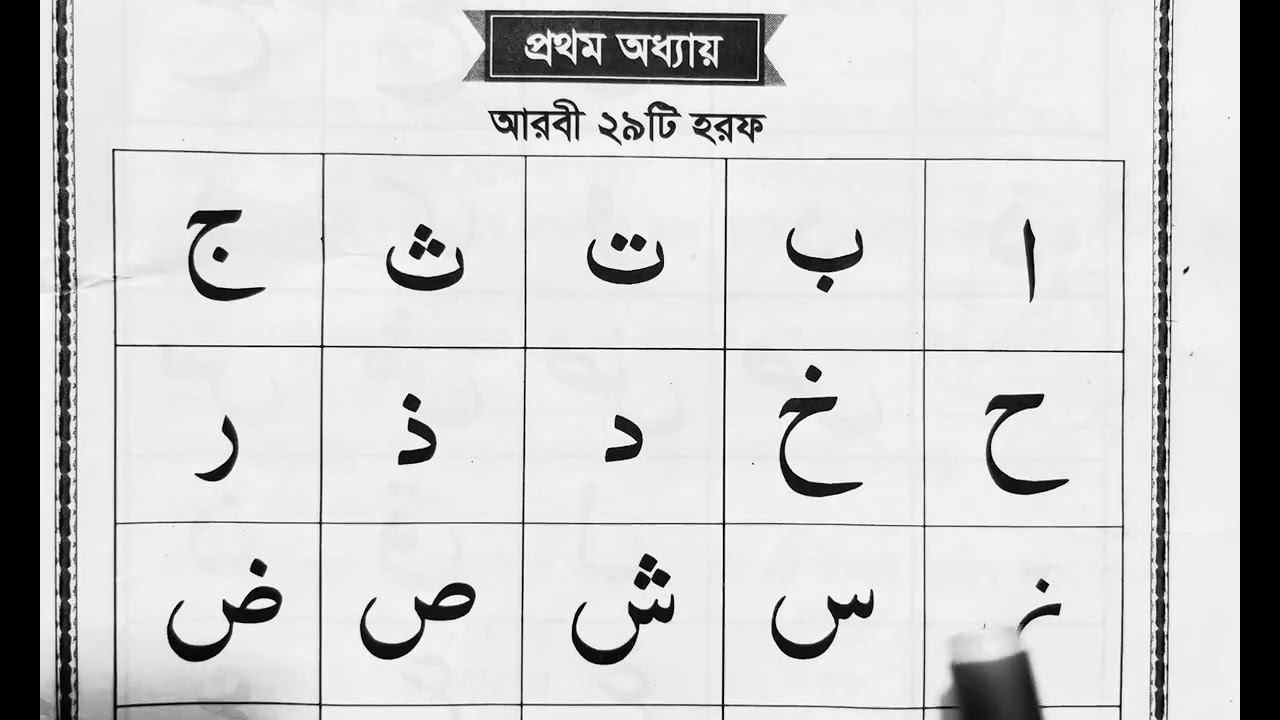 প্রথম অধ্যায়
আরবী ২৯টি হরফ
ا ب ت ث ج
ح خ د ذ ر
ز س ش ص ض